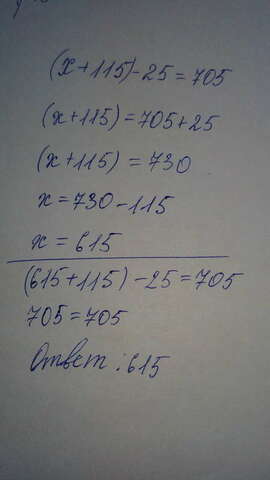 (x+115)-25=705
(x+115)=705+25
(x+115) = 730
x=730-115
x=615
(615+115)-25=705
705=705
Ответ: 615